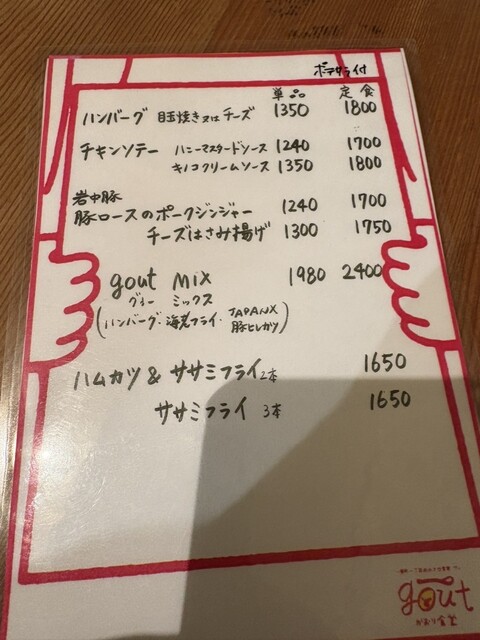 ポテサラ付
単品 定食
ハンバーグ 目玉焼き又はチーズ 1350 1800
チキンソテー ハニーマスタードソース 1240 1700
キノコクリームソース 1350 1800
岩中豚
豚ロースのポークジンジャー 1240 1700
チーズはさみ揚げ 1300 1750
gout mix 1980 2400
グゥー ミックス
(ハンバーグ・海老フライ・JAPANX豚ヒレカツ)
ハムカツ & ササミフライ2本 1650
ササミフライ 3本 1650
gout
かおり食堂